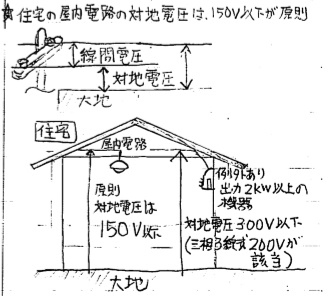 住宅の屋内電路の対地電圧は、150V以下が原則
線間電圧
対地電圧
大地
住宅
屋内電路
原則
対地電圧は
150V以下
例外あり
出力2kW以上の
機器
対地電圧300V以下
(三相3線式200Vが
該当)
大地